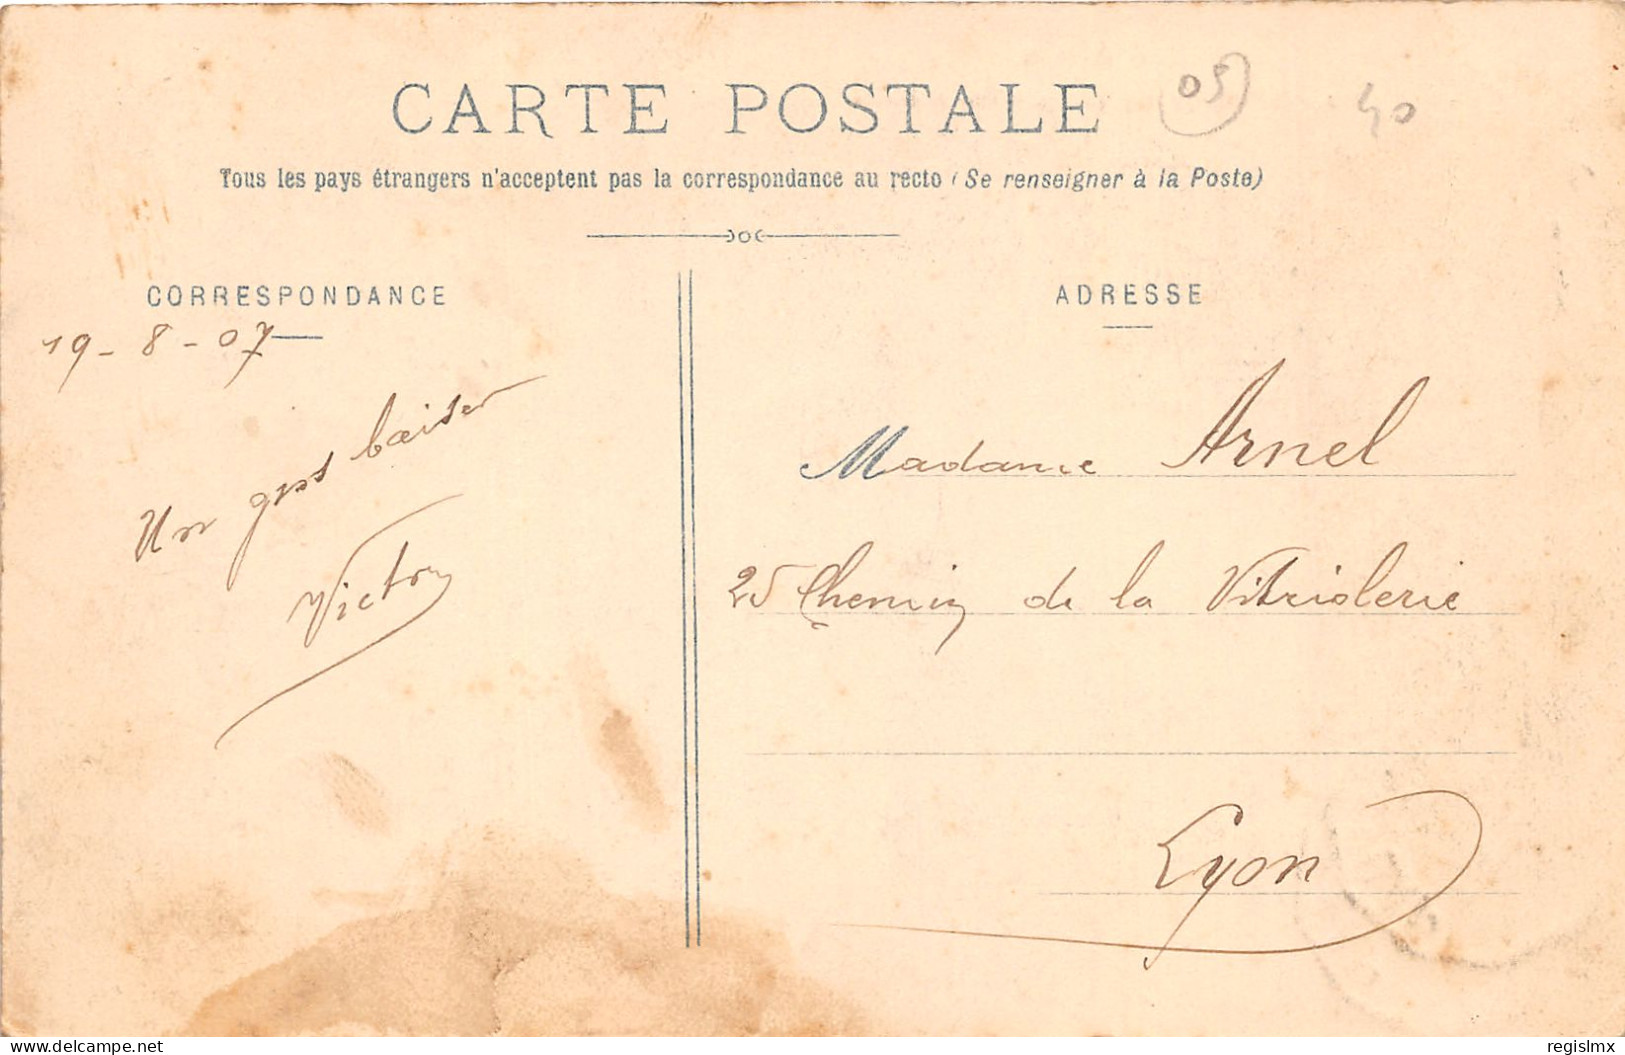 CARTE POSTALE
05
40
Tous les pays étrangers n'acceptent pas la correspondance au recto (Se renseigner à la Poste)
CORRESPONDANCE
19-8-07
Un gros baiser
Victor
ADRESSE
Madame Arnel
25 Chemin de la Vitriolerie
Lyon
delcampe.net
regislmx